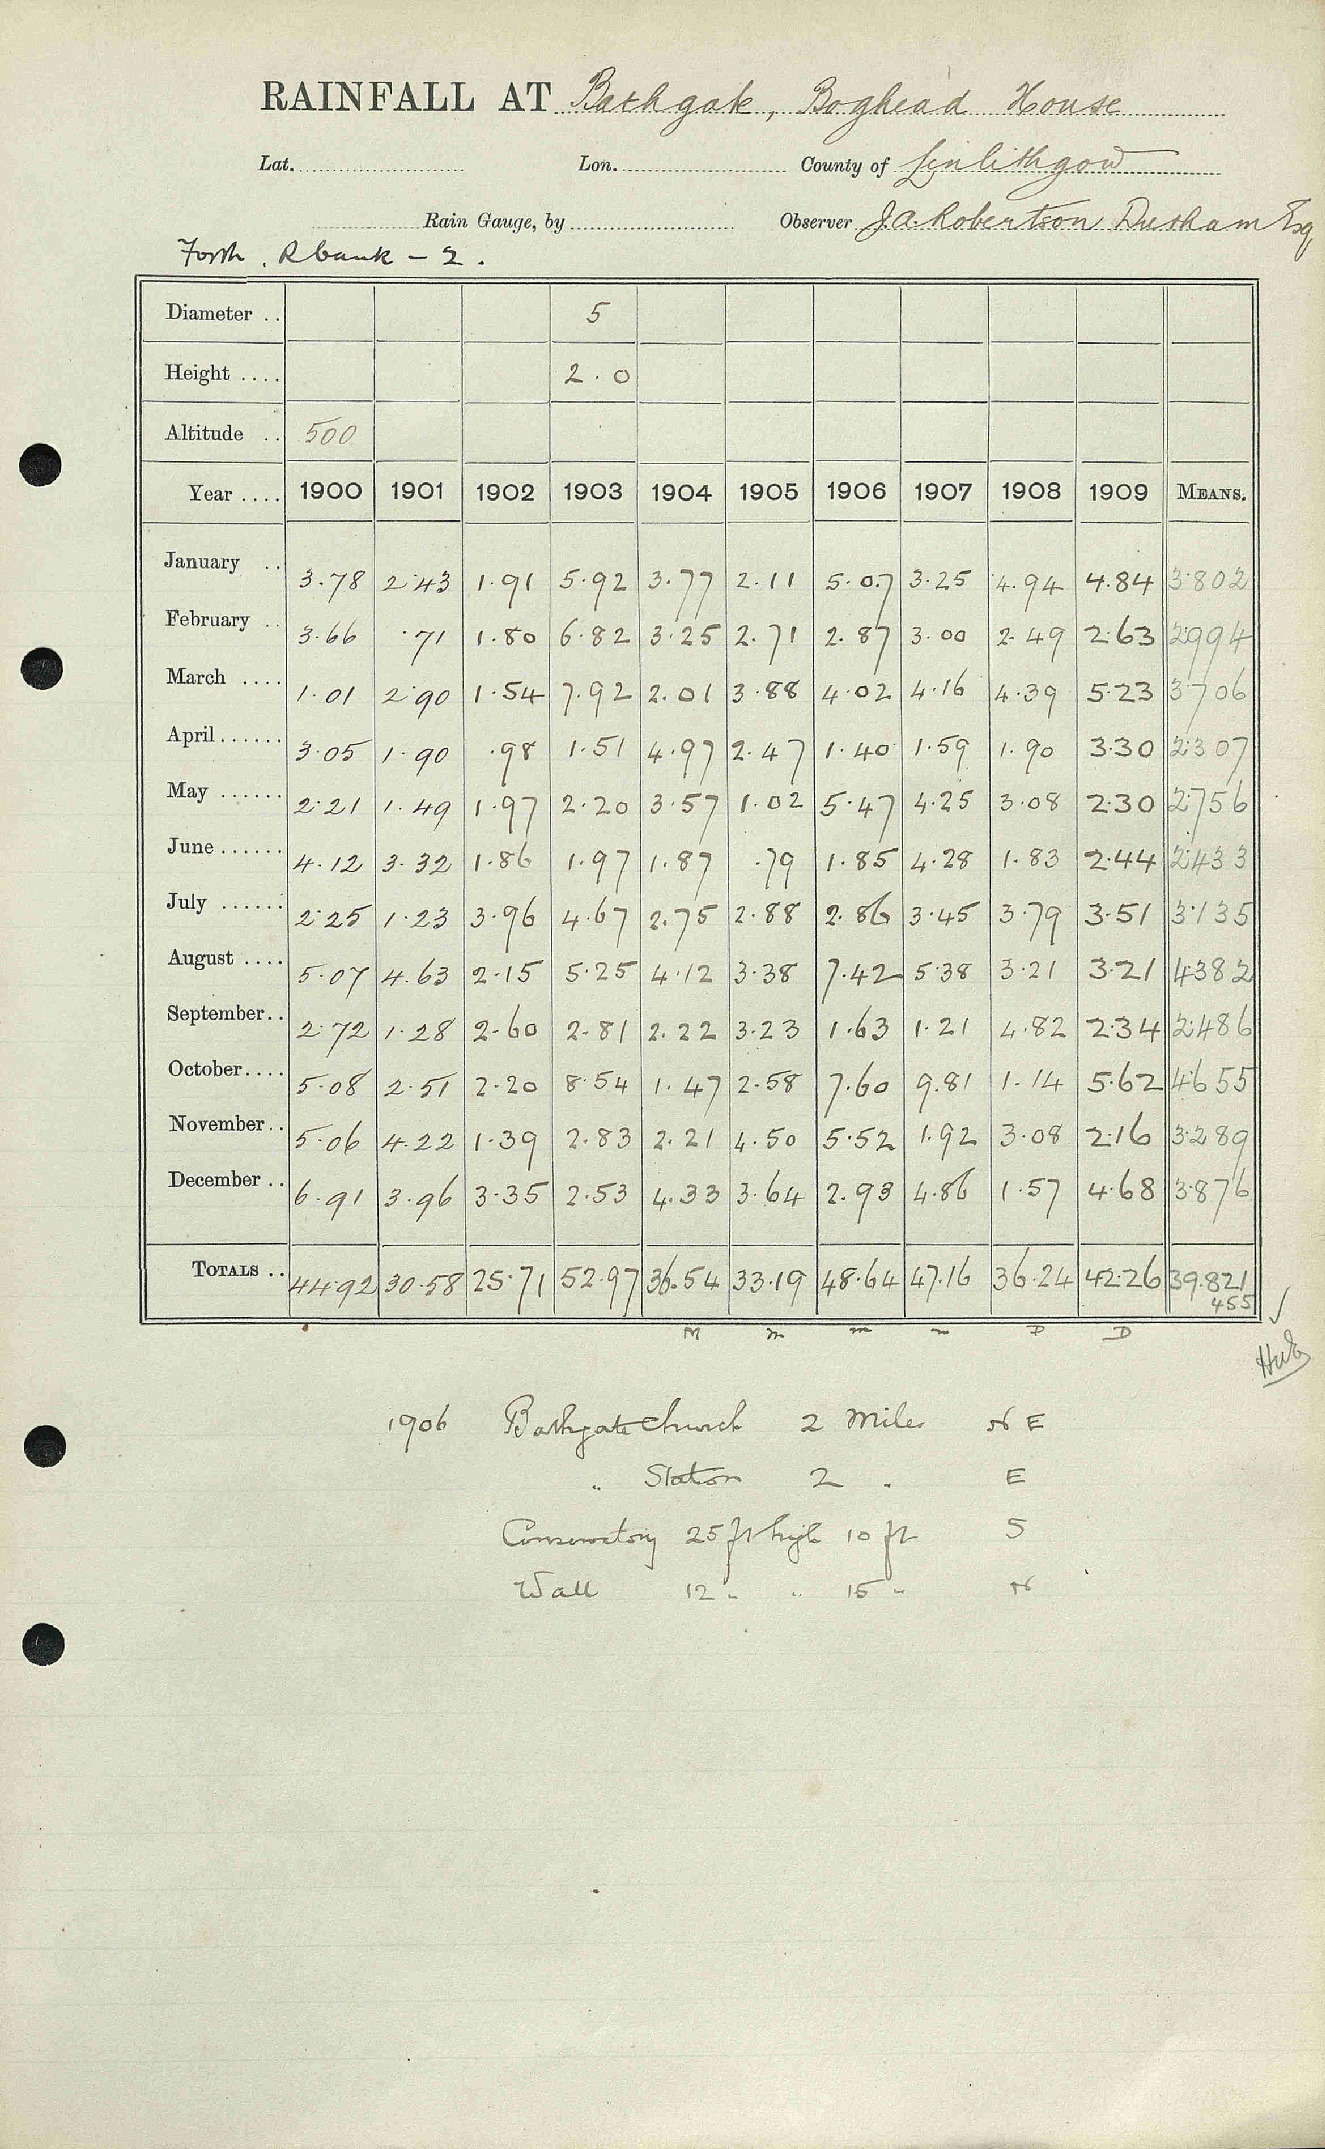 RAINFALL AT Bathgate, Boghead House
Lat. Lon. County of Linlithgow
Rain Gauge, by Observer J.A. Robertson Durham Esq
Forth . R bank - 2 .
Diameter .. 5
Height .... 2.0
Altitude .. 500
Year .... 1900 1901 1902 1903 1904 1905 1906 1907 1908 1909 MEANS.
January .. 3.78 2.43 1.91 5.92 3.77 2.11 5.07 3.25 4.94 4.84 3.802
February .. 3.66 .71 1.80 6.82 3.25 2.71 2.87 3.00 2.49 2.63 2.994
March .... 1.01 2.90 1.54 7.92 2.01 3.88 4.02 4.16 4.39 5.23 3.706
April...... 3.05 1.90 .98 1.51 4.97 2.47 1.40 1.59 1.90 3.30 2.307
May ...... 2.21 1.49 1.97 2.20 3.57 1.02 5.47 4.25 3.08 2.30 2.756
June...... 4.12 3.32 1.86 1.97 1.87 .79 1.85 4.28 1.83 2.44 2.433
July ...... 2.25 1.23 3.96 4.67 2.75 2.88 2.86 3.45 3.79 3.51 3.135
August .... 5.07 4.63 2.15 5.25 4.12 3.38 7.42 5.38 3.21 3.21 4.382
September.. 2.72 1.28 2.60 2.81 2.22 3.23 1.63 1.21 4.82 2.34 2.486
October.... 5.08 2.51 2.20 8.54 1.47 2.58 7.60 9.81 1.14 5.62 4.655
November.. 5.06 4.22 1.39 2.83 2.21 4.50 5.52 1.92 3.08 2.16 3.289
December .. 6.91 3.96 3.35 2.53 4.33 3.64 2.93 4.86 1.57 4.68 3.876
TOTALS .. 44.92 30.58 25.71 52.97 36.54 33.19 48.64 47.16 36.24 42.26 39.821
455
M m m D D
1906 Bathgate Church 2 Miles N E
" Station 2 . E
Conservatory 25 ft high 10 ft S
Wall 12 " " 15 " N